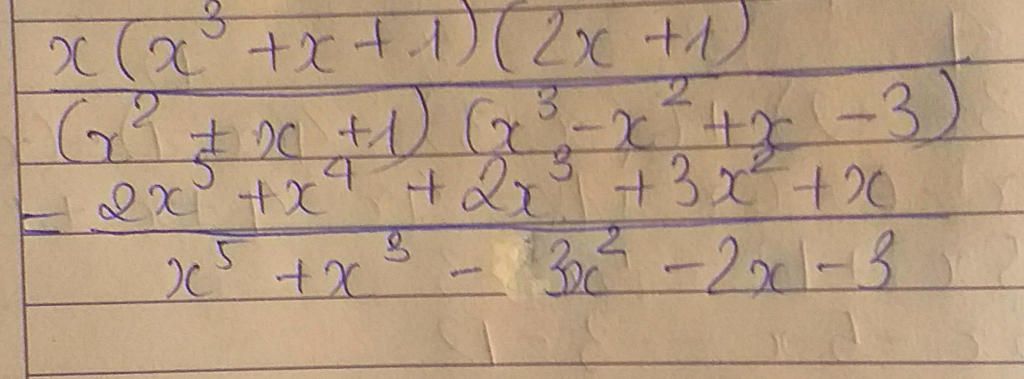 x(x³ + x + 1)(2x + 1)
(x² + x + 1)(x³ - x² + x - 3)
= 2x⁵ + x⁴ + 2x³ + 3x² + x
x⁵ + x³ - 3x² - 2x - 3